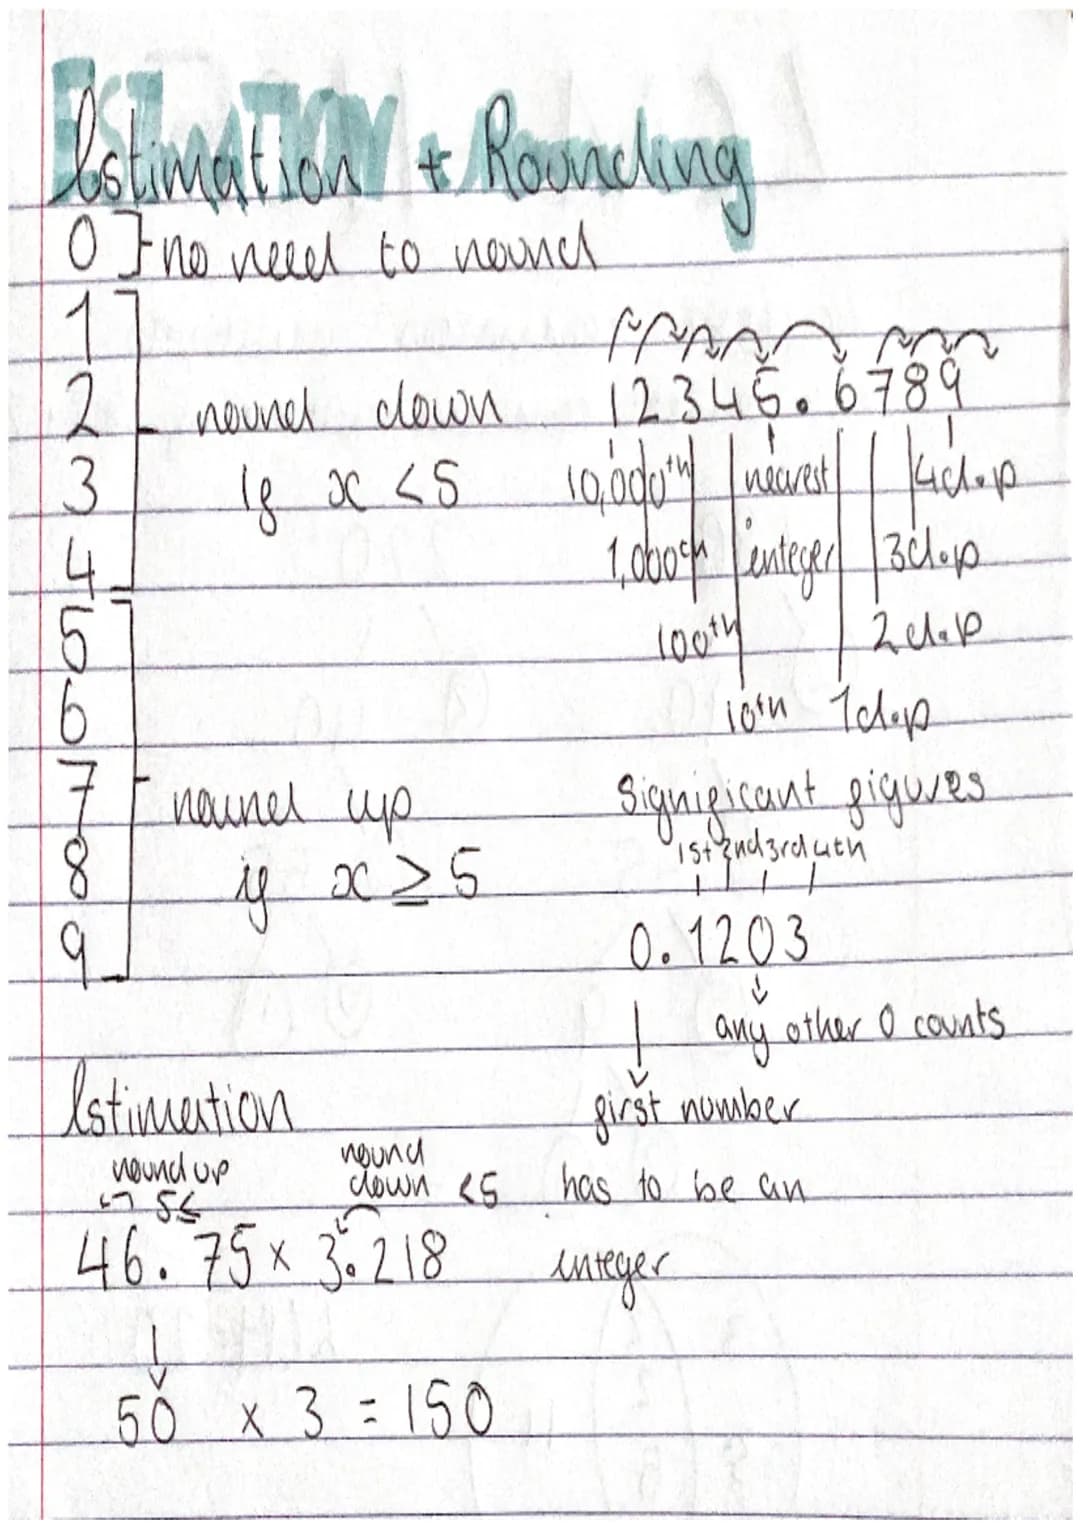 ESTIMATION
Estimation + Rounding
0 } no need to round
1
2 round down
3 if x < 5
4
5
6
7 round up
8 if x ≥ 5
9
12345.6789
10,000th nearest 4d.p
1,000th integer 3d.p
100th 2d.p
10th 1d.p
Significant figures
1st 2nd 3rd 4th
0.1203
any other 0 counts
first number
has to be an
integer
Estimation
round up round
5≤ down <5
46.75 x 3.218
50 x 3 = 150